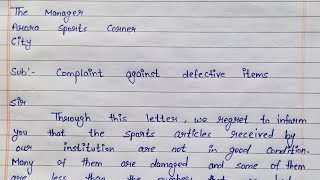 The Manager
Arora Sports Corner
City
Sub:- Complaint against defective items
Sir
Through this letter, we regret to inform
you that the sports articles received by
our institution are not in good condition.
Many of them are damaged and some of them
are less than the number